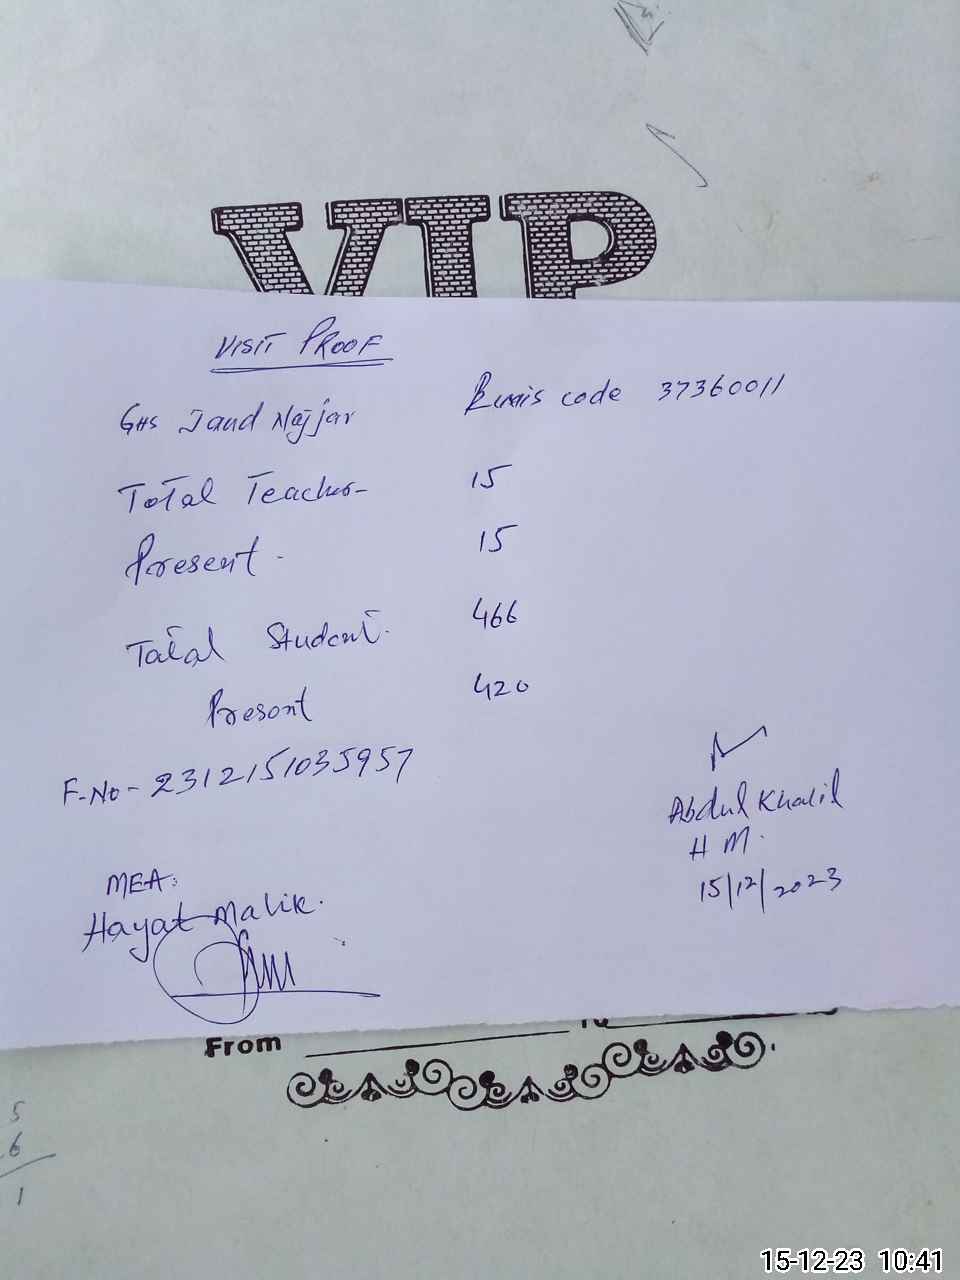 VIP
VISIT PROOF
GHS Jand Najjar Bemis code 37360011
Total Teacher- 15
Present - 15
Total Student. 466
Present 420
F-No - 2312151035957
Abdul Khalil
H M.
15/12/2023
MEA:
Hayat Malik.
From To
5
6
1
15-12-23 10:41